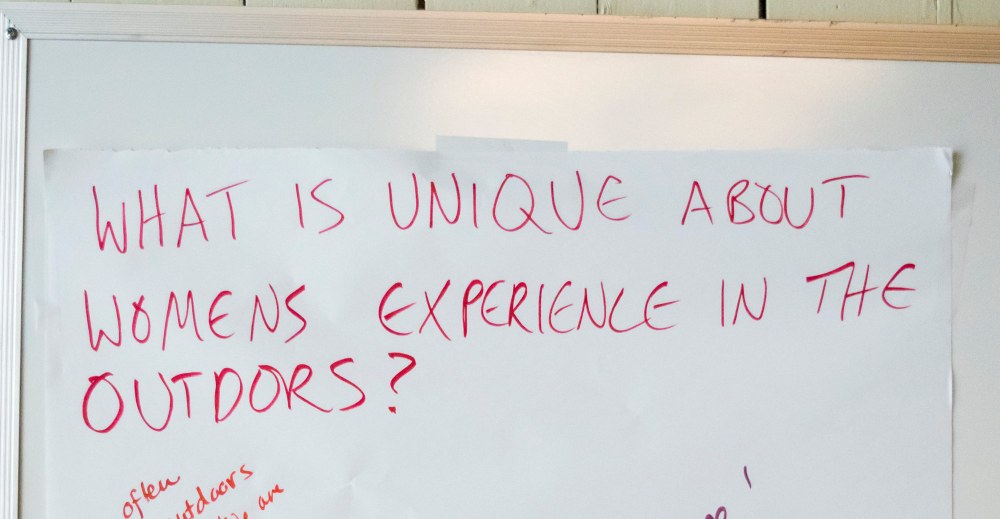 WHAT IS UNIQUE ABOUT
WOMENS EXPERIENCE IN THE
OUTDORS?
often
outdoors
are